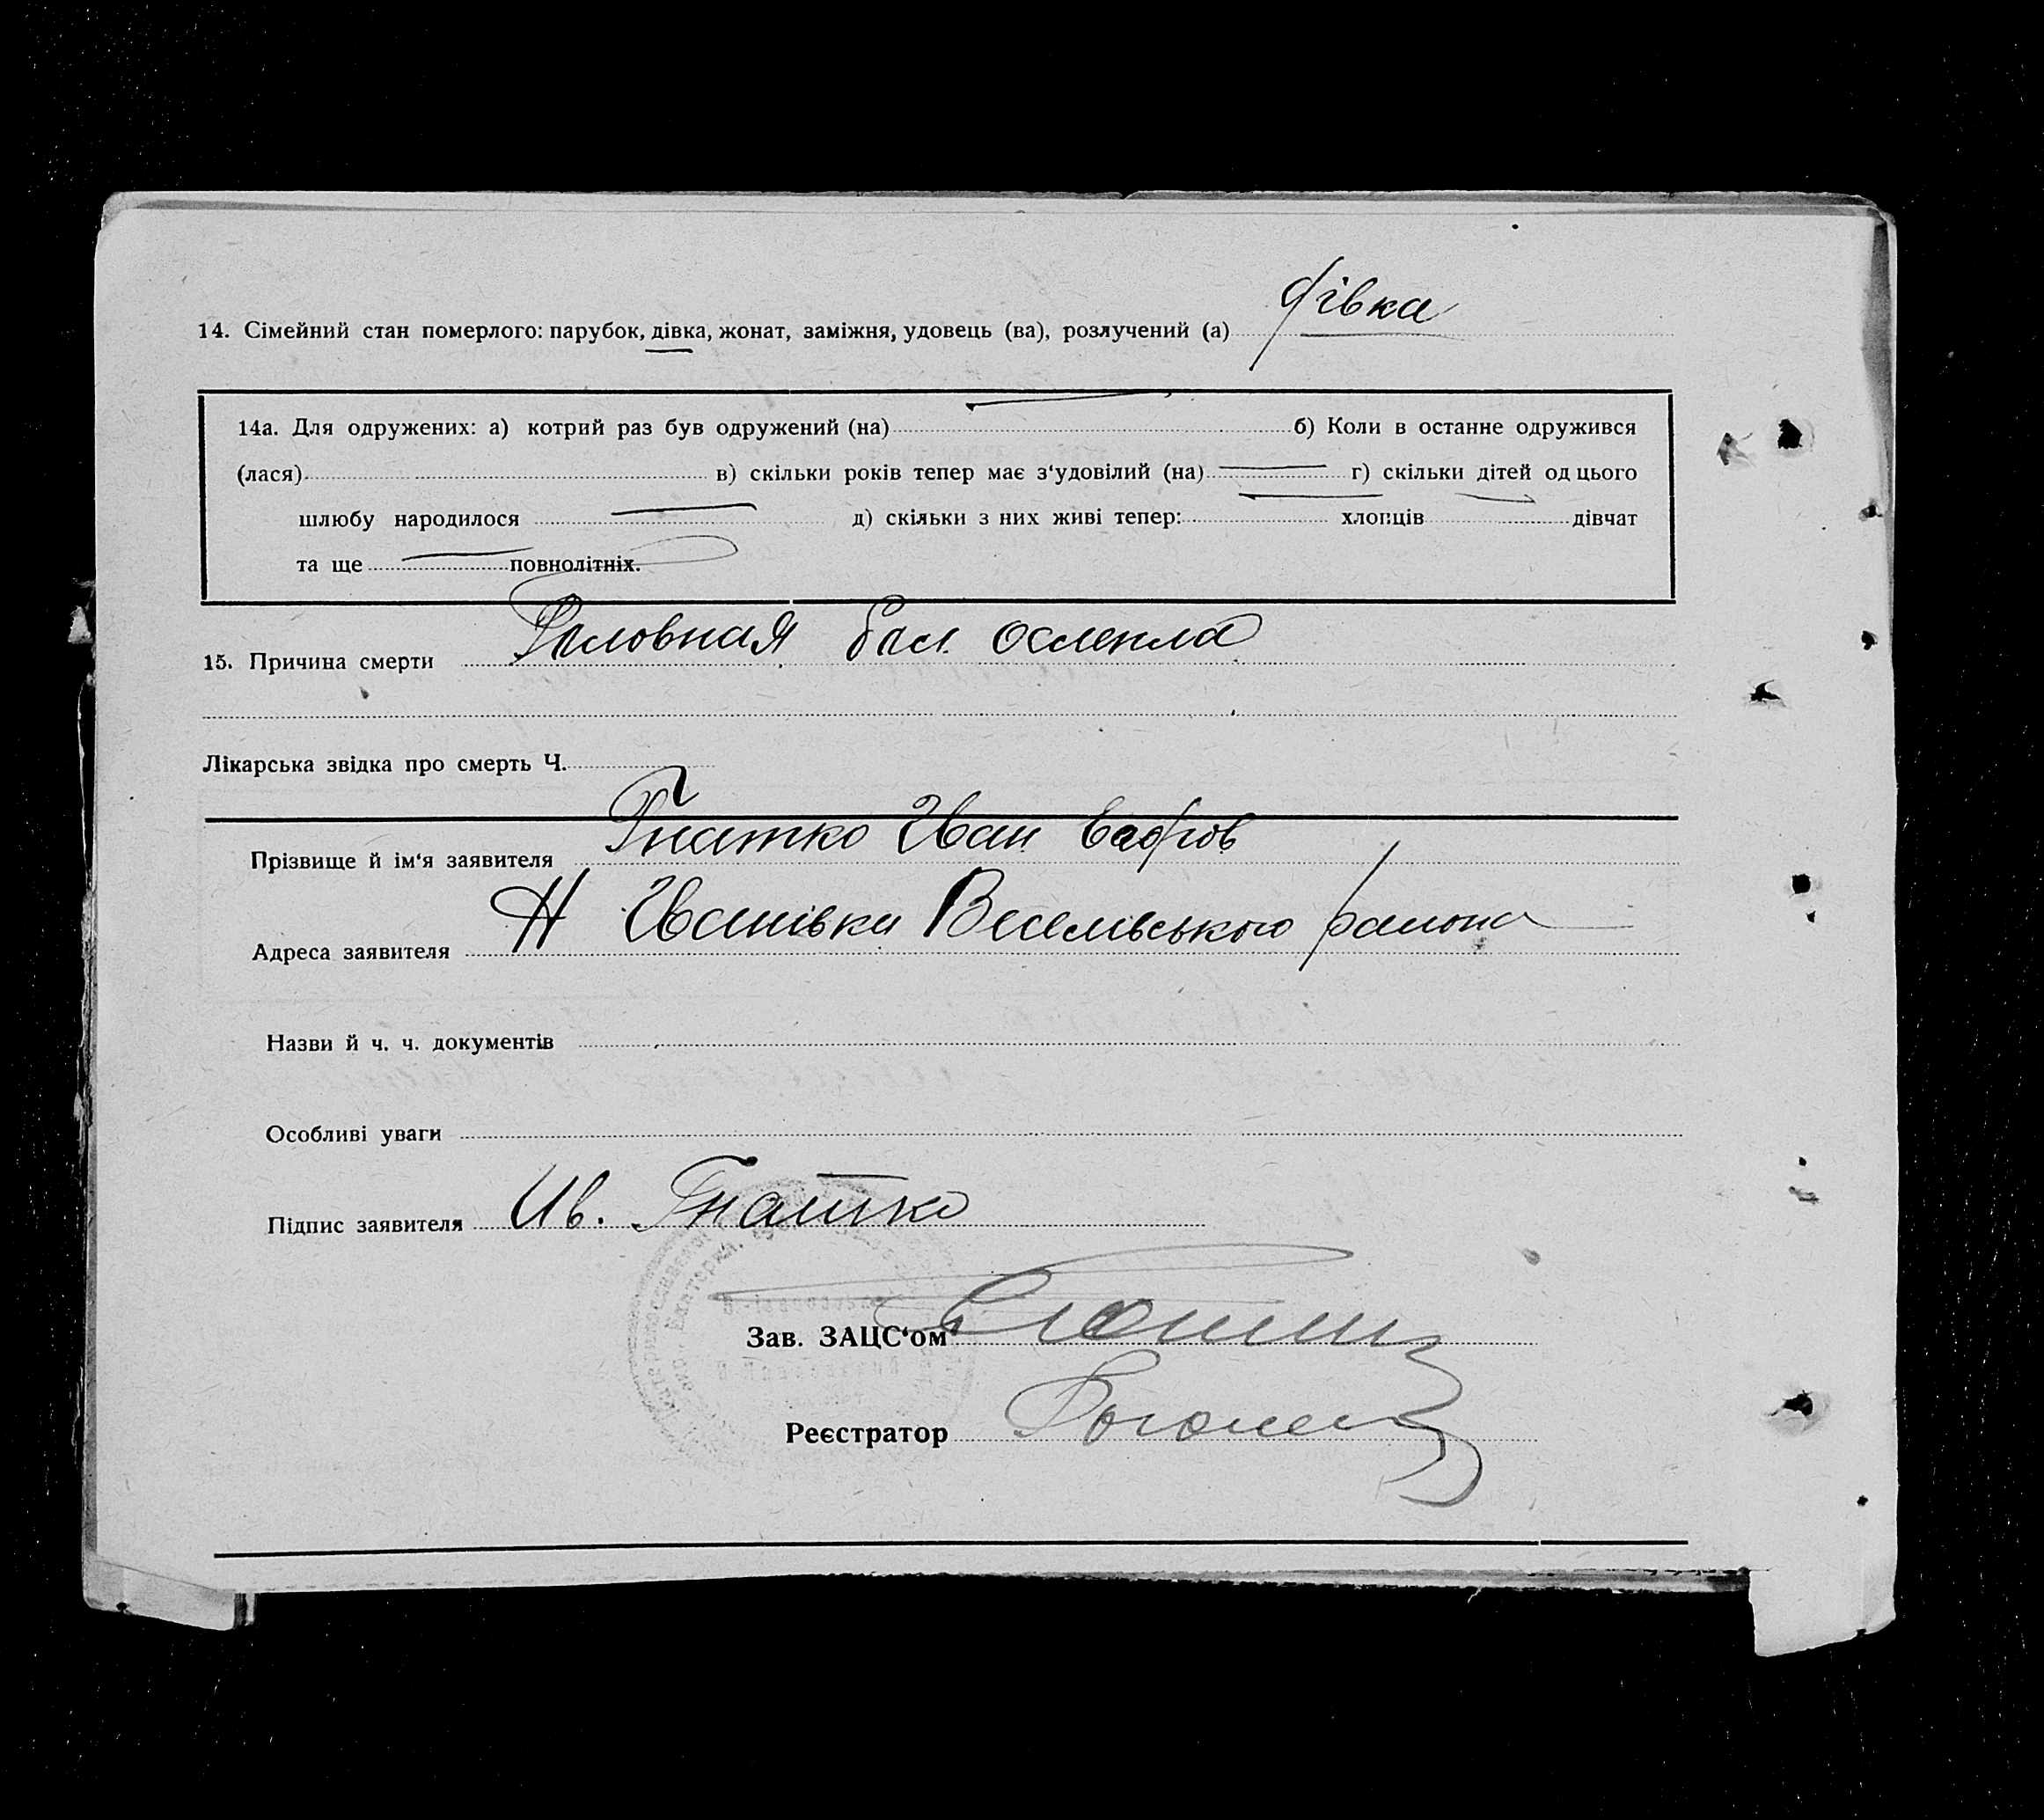 дівка
14. Сімейний стан померлого: парубок, дівка, жонат, заміжня, удовець (ва), розлучений (а)
14а. Для одружених: а) котрий раз був одружений (на) б) Коли в останне одружився
(лася) в) скільки років тепер має з‘удовілий (на) г) скільки дітей од цього
шлюбу народилося д) скільки з них живі тепер: хлопців дівчат
та ще повнолітніх.
15. Причина смерти Головная бол. ослепла
Лікарська звідка про смерть Ч.
Прізвище й ім‘я заявителя Гнатко Иван
Адреса заявителя Н Иванівка Веселівського района
Назви й ч. ч. документів
Особливі уваги
Підпис заявителя Ив. Гнатко
Зав. ЗАЦС‘ом
Реєстратор